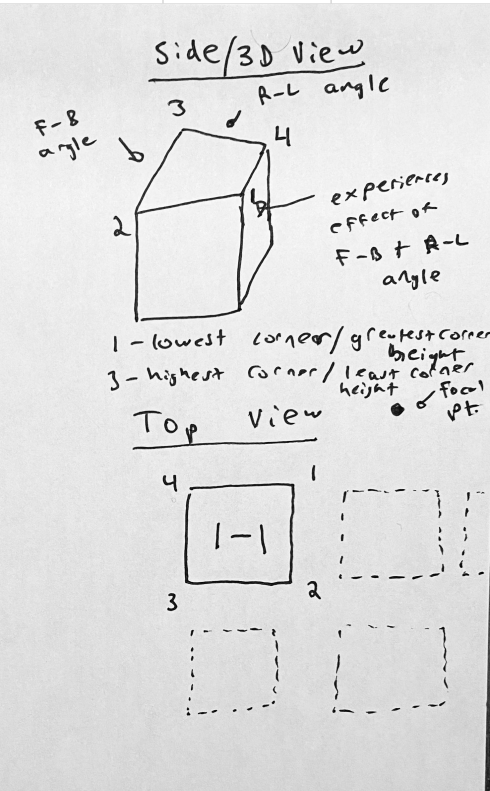 Side/3D View
R-L angle
3
F-B
angle
4
2
1
experiences
effect of
F-B + R-L
angle
1 - lowest corner/greatest corner
height
3 - highest corner/least corner
height
focal
pt.
Top View
4 1
1-1
3 2